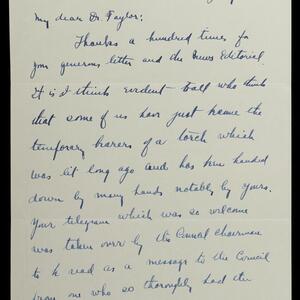 My dear Dr. Taylor:
Thanks a hundred times for
your generous letter and the News Editorial.
It is I think evident to all who think
that some of us have just become the
temporary bearers of a torch which
was lit long ago and has been handed
down by many hands notably by yours.
Your telegram which was so welcome
was taken over by the Council chairman
to be read as a message to the Council
from one who so thoroughly had the